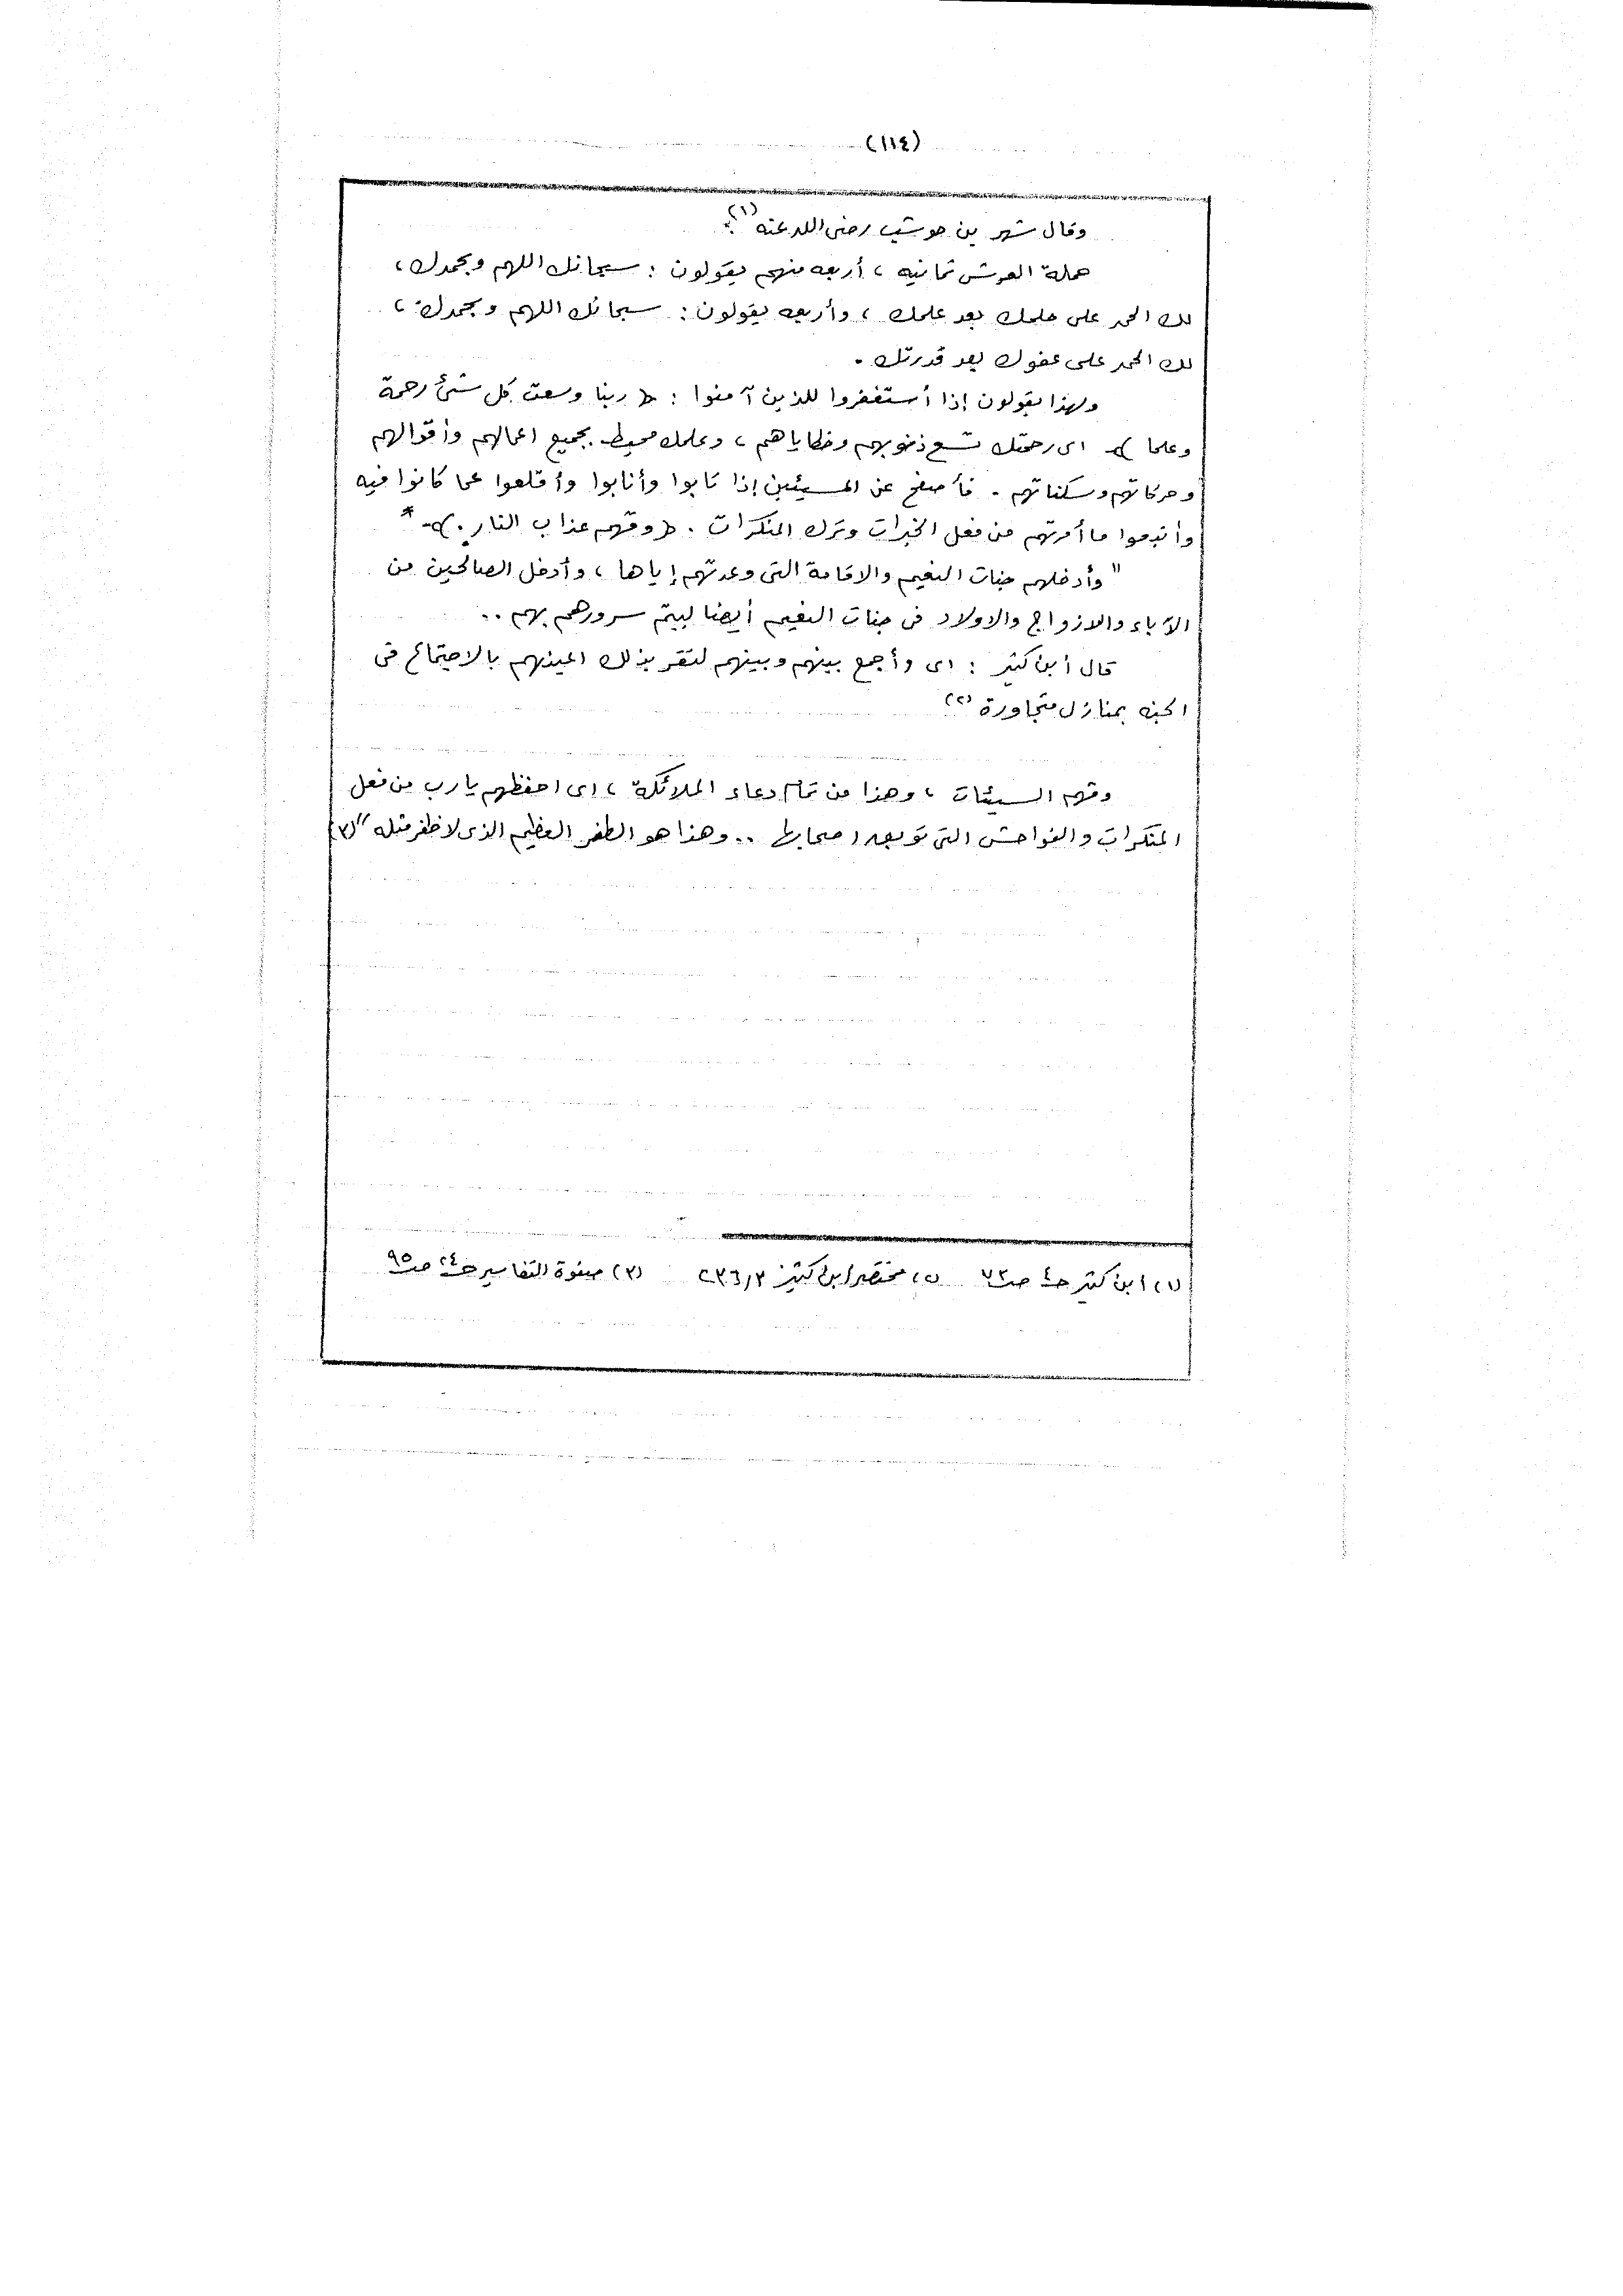 (١١٤)
وقال شهر بن حوشب رضى الله عنه (١):
حملة العرش ثمانيه ، أربعه منهم يقولون : سبحانك اللهم وبحمدك ،
لك الحمد على حلمك بعد علمك ، وأربعه يقولون : سبحانك اللهم وبحمدك ،
لك الحمد على عفوك بعد قدرتك .
ولهذا يقولون إذا أستغفروا للذين آمنوا : ﴿ ربنا وسعت كل شئ رحمة
وعلما ﴾ اى رحمتك تسع ذنوبهم وخطاياهم ، وعلمك محيط بجميع اعمالهم وأقوالهم
وحركاتهم وسكناتهم . فأصفح عن المسيئين إذا تابوا وأنابوا وأقلعوا عما كانوا فيه
وأتبعوا ما أمرتهم من فعل الخيرات وترك المنكرات . ﴿ وقهم عذاب النار . ﴾ *
" وأدخلهم جنات النعيم والاقامة التى وعدتهم إياها ، وأدخل الصالحين من
الآباء والازواج والاولاد فى جنات النعيم أيضا ليتم سرورهم بهم ..
قال أبن كثير : اى وأجمع بينهم وبينهم لتقر بذلك اعينهم بالاجتماع فى
الجنه بمنازل متجاورة (٢)
وقهم السيئات ، وهذا من تمام دعاء الملائكة ، اى احفظهم يارب من فعل
المنكرات والفواحش التى توبعد اصحابها .. وهذا هو الظفر العظيم الذى لا ظفر مثله " (٣)
(١) ابن كثير حـ٤ صـ٧٢ (٢) مختصر ابن كثير ٢٣٦/٣ (٣) صفوة التفاسير حـ٢٤ صـ٩٥